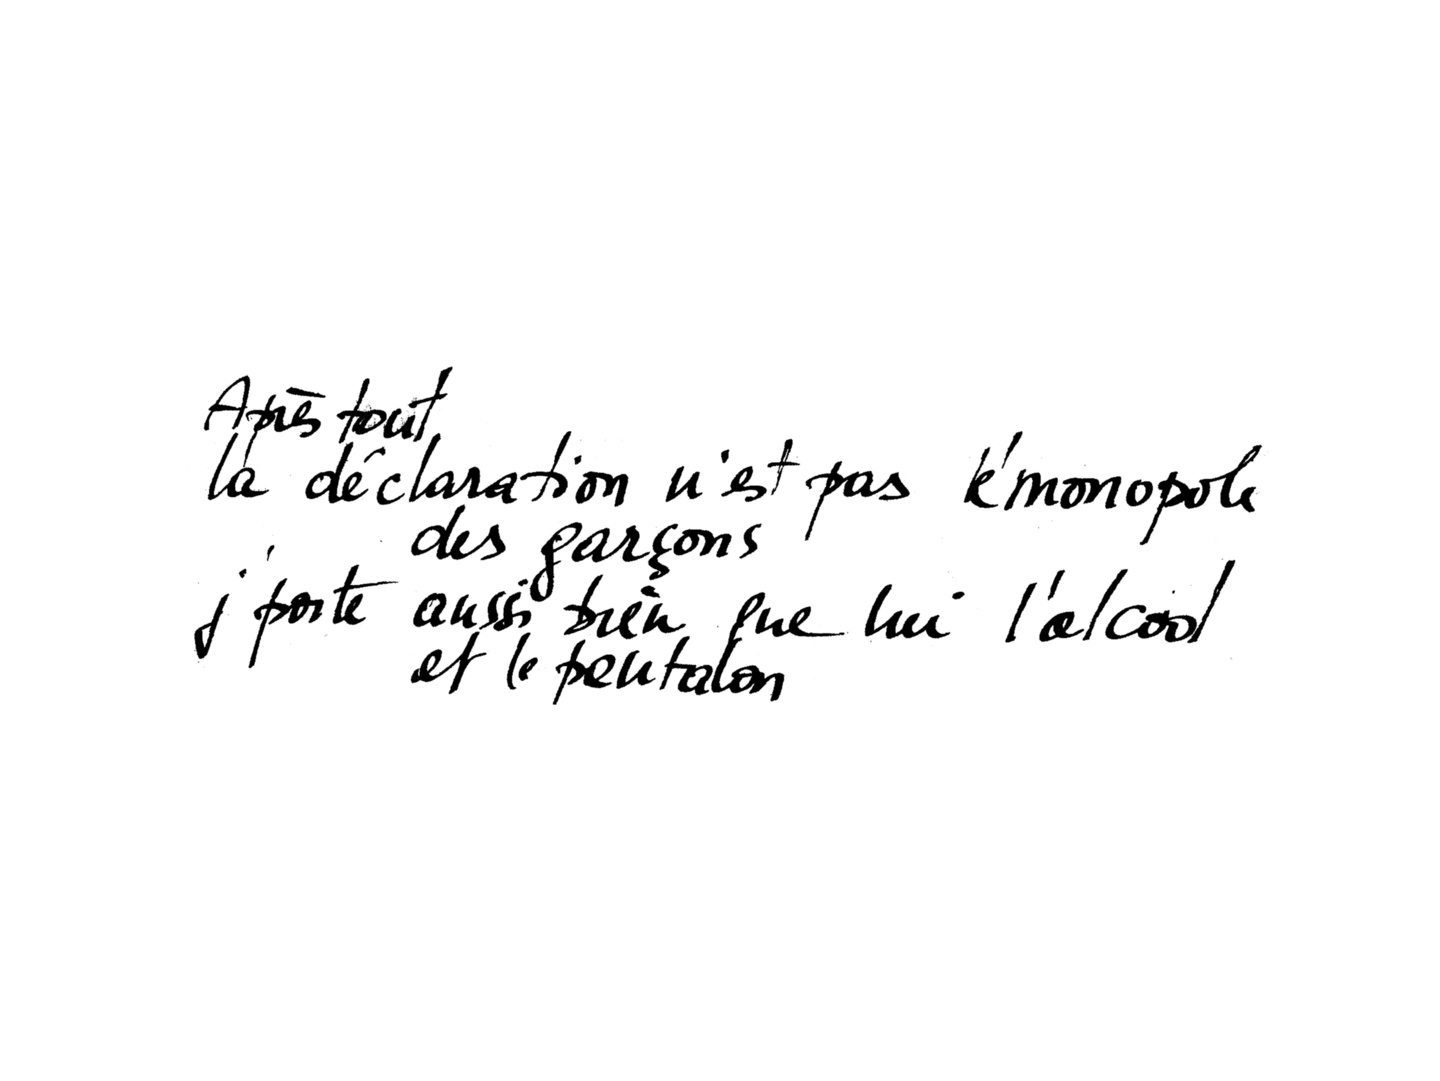 Après tout
la déclaration n'est pas l'émonopole
des garçons
j'porte aussi bien que lui l'alcool
et le pentalon